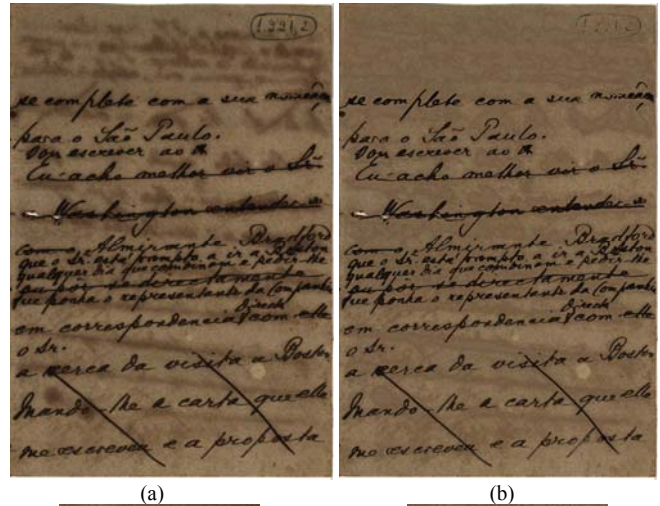 1.221,2
se complete com a sua nomeação
para o São Paulo.
Vou escrever ao
Eu acho melhor vir o Sr.
Washington entender
com o Almirante Bradford
que o Sr. está prompto a ir a Boston
qualquer dia que combinem e pedir-lhe
ou por-se directamente
que ponha o representante da Companhia
em correspondencia direct. com elle
o Sr.
a cerca da visita a Boston
Mando-lhe a carta que elle
me escreveu e a proposta
(a)
se complete com a sua nomeação
para o São Paulo.
Vou escrever ao
Eu acho melhor vir o Sr.
Washington entender
com o Almirante Bradford
que o Sr. está prompto a ir a Boston
qualquer dia que combinem e pedir-lhe
ou por-se directamente
que ponha o representante da Companhia
em correspondencia direct. com elle
o Sr.
a cerca da visita a Boston
Mando-lhe a carta que elle
me escreveu e a proposta
(b)